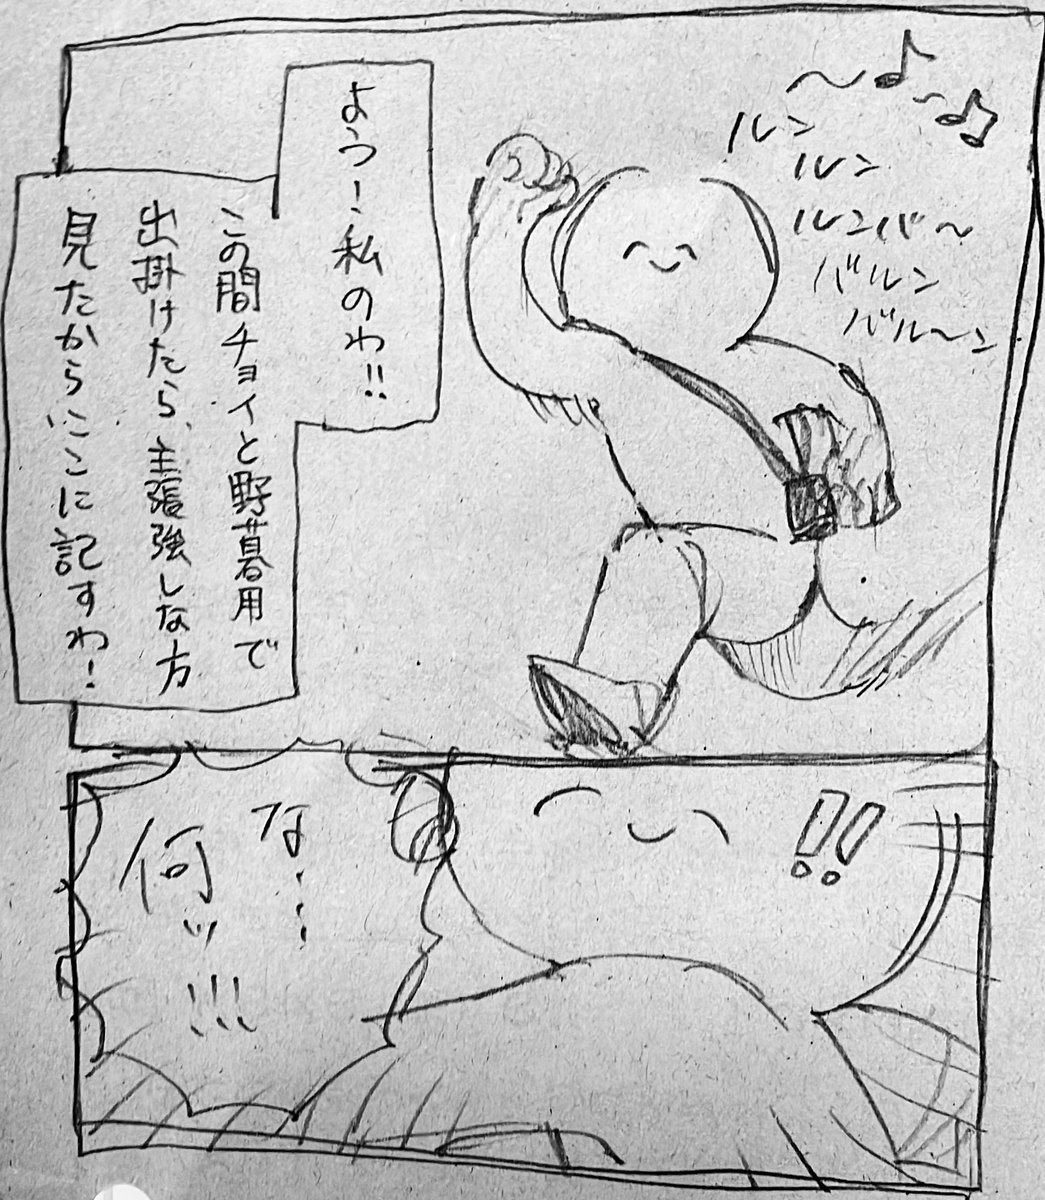 ルン
ルン
ルンバ〜
バルン
バル〜ン
よう！私のわ!!
この間チョイと野暮用で
出掛けたら、主張強しな方
見たからここに記すわ！
!!
な……
何ッ!!!